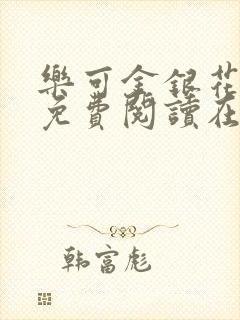 樂可金銀花
免費閱讀在
韩富彪